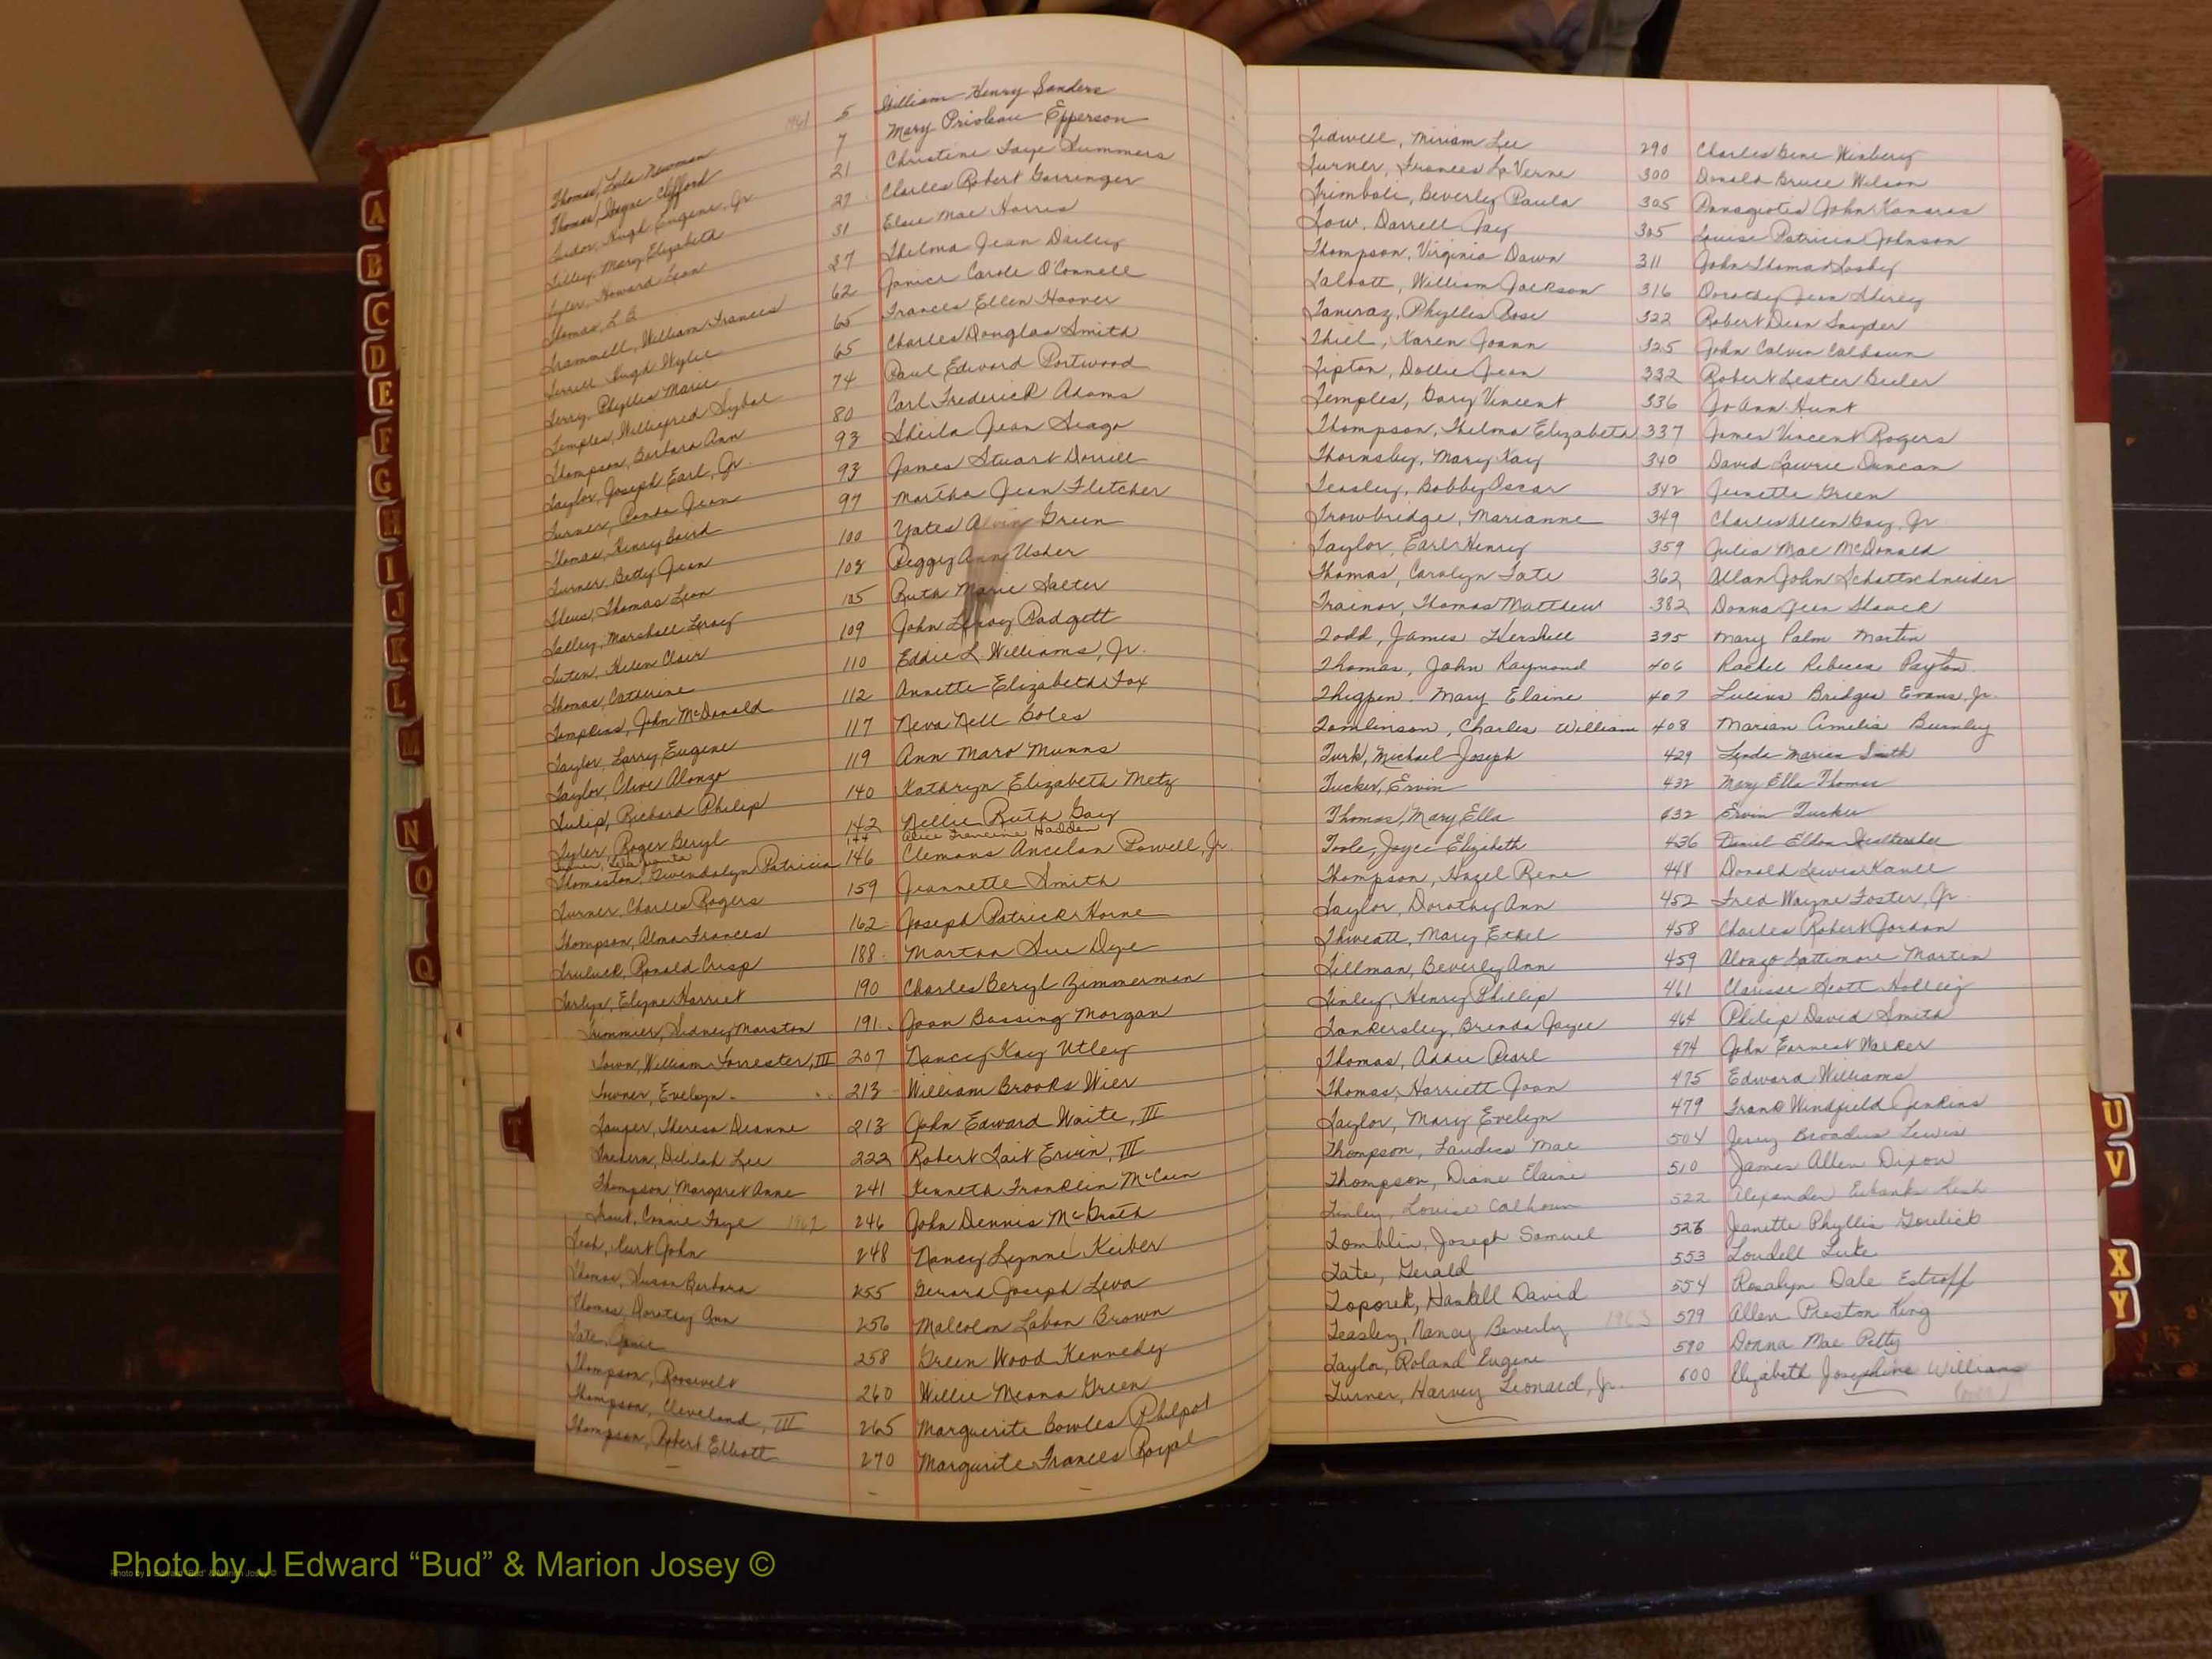 1961
Thomas, Lula Newman 5 William Henry Sanders
Thomas, Wayne Clifford 7 Mary Prioleau Epperson
Tudor, Hugh Eugene, Jr. 21 Christine Faye Summers
Tilley, Mary Elizabeth 27 Charles Robert Garringer
Tyler, Howard Leon 31 Elsie Mae Harris
Thomas, L.B. 37 Thelma Jean Dailey
Trammell, William Frances 62 Janice Carole O'Connell
Terrell Hugh Wylie 65 Frances Ellen Hoover
Terry, Phyllis Marie 65 Charles Douglas Smith
Temples, Sybal 74 Paul Edward Portwood
Thompson, Barbara Ann 80 Carl Frederick Adams
Taylor, Joseph Earl, Jr. 93 Sheila Jean Seago
Turner, Jean 93 James Stuart Dorrill
Thomas, Henry Baird 97 Martha Jean Fletcher
Turner, Betty Jean 100 Yates Alvin Green
Theus, Thomas Leon 103 Peggy Ann Usher
Talley, Marshall Leroy 105 Ruth Marie Salter
Tuten, Helen Clair 109 John Leroy Padgett
Thomas, Catherine 110 Eddie L. Williams, Jr.
Tompkins, John McDonald 112 Annette Elizabeth Fox
Taylor, Larry Eugene 117 Neva Nell Boles
Taylor, Clive Alonzo 119 Ann Maro Munns
Tulip, Richard Philip 140 Kathryn Elizabeth Metz
Tyler, Roger Beryl 142 Nellie Ruth Gay
144 Alice Francine Hadden
Thomaston, Gwendolyn Patricia 146 Clemons Ancelan Powell, Jr.
Turner, Charles Rogers 159 Jeannette Smith
Thompson, Alma Frances 162 Joseph Patrick Horne
Truluck, Ronald Crisp 188 Martha Sue Dye
Elyne Harriet 190 Charles Beryl Zimmerman
Trimmier, Sidney Marston 191 Joan Bassing Morgan
Town, William Forrester, III 207 Nancy Kay Utley
Turner, Evelyn 213 William Brooks Wier
Theresa Deanne 213 John Edward Waite, III
Delilah Lee 222 Robert Tait Ervin, III
Thompson, Margaret Anne 241 Kenneth Franklin McCain
Trout, Connie Faye 1962 246 John Dennis McGrath
Kurt John 248 Nancy Lynne Keiber
Thomas, Susan Barbara 255 Gerard Joseph Leva
Thomas, Dorothy Ann 256 Malcolm Laban Brown
Tate, Janie 258 Green Wood Kennedy
Thompson, Roosevelt 260 Willie Meana Green
Thompson, Cleveland, III 265 Marguerite Bowles Philpot
Thompson, Robert Elliott 270 Margurite Frances Royal
Tidwell, Miriam Lee 290 Charles Gene Winberry
Turner, Frances LaVerne 300 Donald Bruce Wilson
Trimboli, Beverly Paula 305 Panagiotis John Kanaras
Tow, Darrell Jay 305 Louise Patricia Johnson
Thompson, Virginia Dawn 311 John Thomas Losby
Talbott, William Jackson 316 Dorothy Jean Shirey
Tamraz, Phyllis Rose 322 Robert Dean Snyder
Thiel, Karen Joann 325 John Calvin Calhoun
Tipton, Dollie Jean 332 Robert Lester Beeler
Temples, Gary Vincent 336 Jo Ann Hunt
Thompson, Thelma Elizabeth 337 James Vincent Rogers
Thornsby, Mary Kay 340 David Lawrie Duncan
Teasley, Bobby Oscar 342 Jeanette Green
Trowbridge, Marianne 349 Charles Allen Gay, Jr.
Taylor, Earl Henry 359 Julia Mae McDonald
Thomas, Carolyn Tate 362 Allan John Schattschneider
Trainor, Thomas Matthew 382 Donna Jean Shauck
Todd, James Hershell 395 Mary Palm Martin
Thomas, John Raymond 406 Rachel Rebecca Payton
Thigpen, Mary Elaine 407 Lucius Bridges Evans, Jr.
Tomlinson, Charles William 408 Marian Amelia Burnley
Turk, Michael Joseph 429 Lynda Marion Smith
Tucker, Ervin 432 Mary Ella Thomas
Thomas, Mary Ella 432 Ervin Tucker
Toole, Joyce Elizabeth 436 Daniel Eldon
Thompson, Hazel Rene 448 Donald Lewis
Taylor, Dorothy Ann 452 Fred Wayne Foster, Jr.
Thweatt, Mary Ethel 458 Charles Robert Jordan
Tillman, Beverly Ann 459 Alonzo Lattimore Martin
Tinley, Henry Phillip 461 Clarisse Scott Holley
Tankersley, Brenda Joyce 464 Philip David Smith
Thomas, Addie Pearl 474 John Earnest Walker
Thomas, Harriett Joan 475 Edward Williams
Taylor, Mary Evelyn 479 Frank Windfield Jenkins
Thompson, Landics Mae 504 Jerry Broadus Lewis
Thompson, Diane Elaine 510 James Allen Dixon
Tinley, Louise Calhoun 522 Alexander Eubanks
Tomblin, Joseph Samuel 526 Jeanette Phyllis Gorelick
Tate, Gerald 553 Loudell Luke
Toporek, Haskell David 554 Rosalyn Dale Estroff
Teasley, Nancy Beverly 1963 579 Allen Preston King
Taylor, Roland Eugene 590 Donna Mae Petty
Turner, Harvey Leonard, Jr. 600 Elizabeth Josephine Williams
(over)
A
B
C
D
E
F
G
H
I
J
K
L
M
N
O
Q
T
U
V
X
Y
Photo by J Edward “Bud” & Marion Josey ©
Photo by J Edward “Bud” & Marion Josey ©